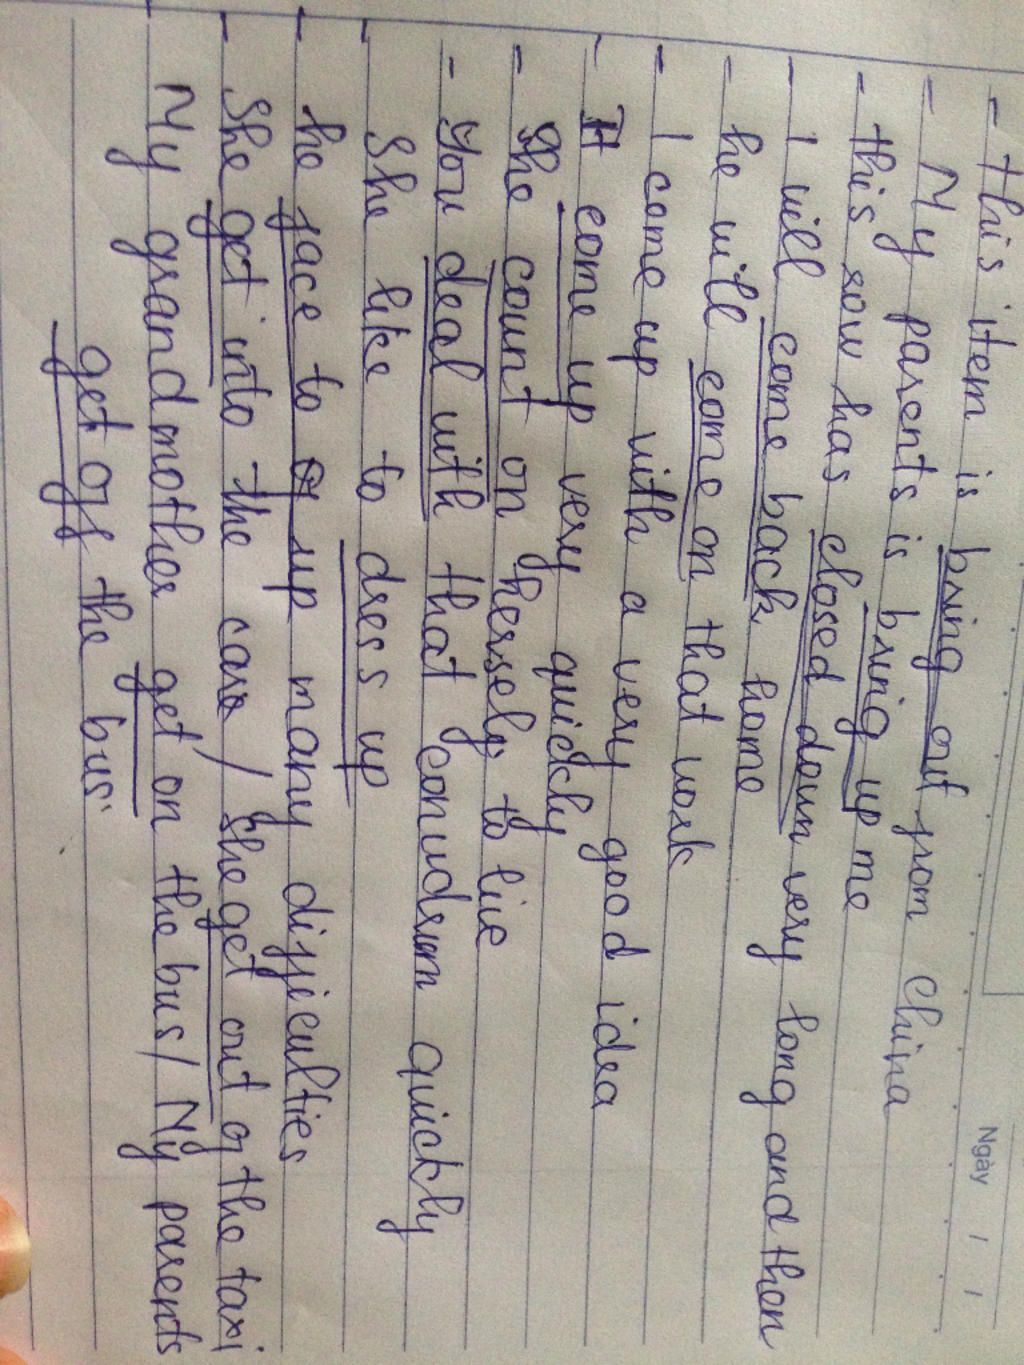 Ngày / /
- this item is bring out from china
- My parents is bring up me
- this sow has closed down very long and then
- I will come back home
- he will come on that work
- I come up with a very good idea
- It come up very quickly
- She count on herself to live
- You deal with that conudrum quickly
She like to dress up
- he face to up many difficulties
- She get into the car / she get out of the taxi
- My grandmother get on the bus / My parents
get off the bus